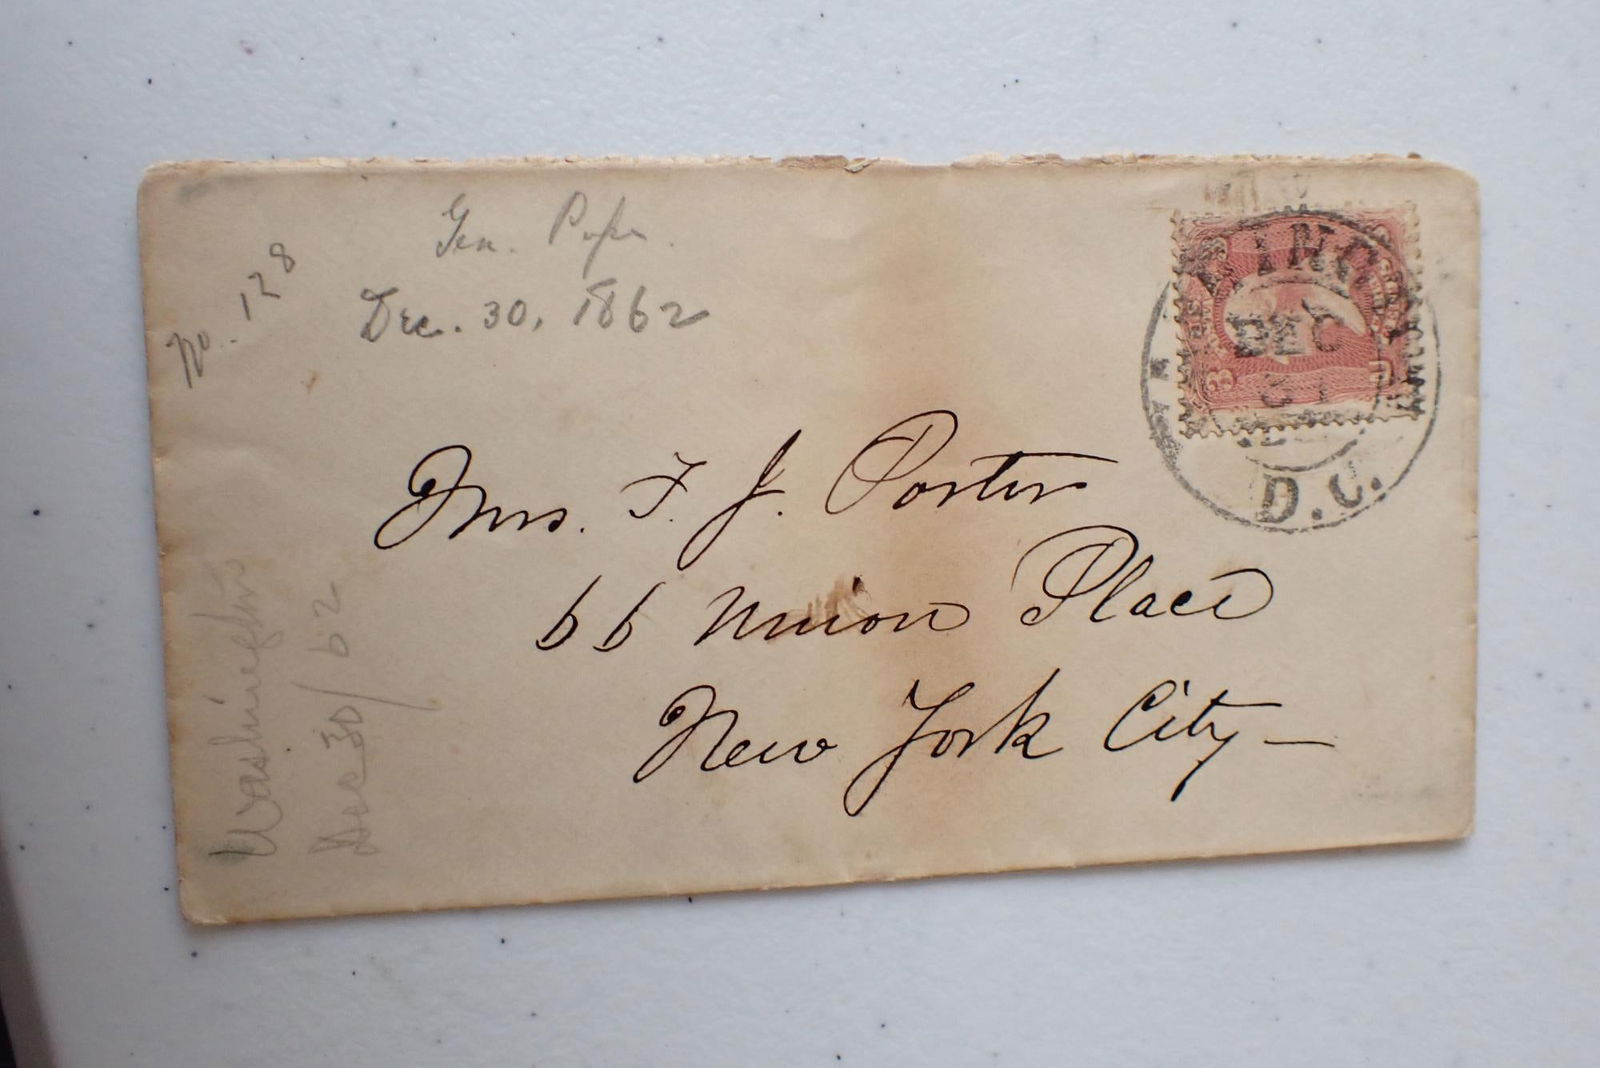 No. 128
Gen. Pope.
Dec. 30, 1862
Mrs. F. J. Porter
66 Union Place
New York City
Washington
Dec 30/62
WASHINGTON
DEC
31
D.C.
3